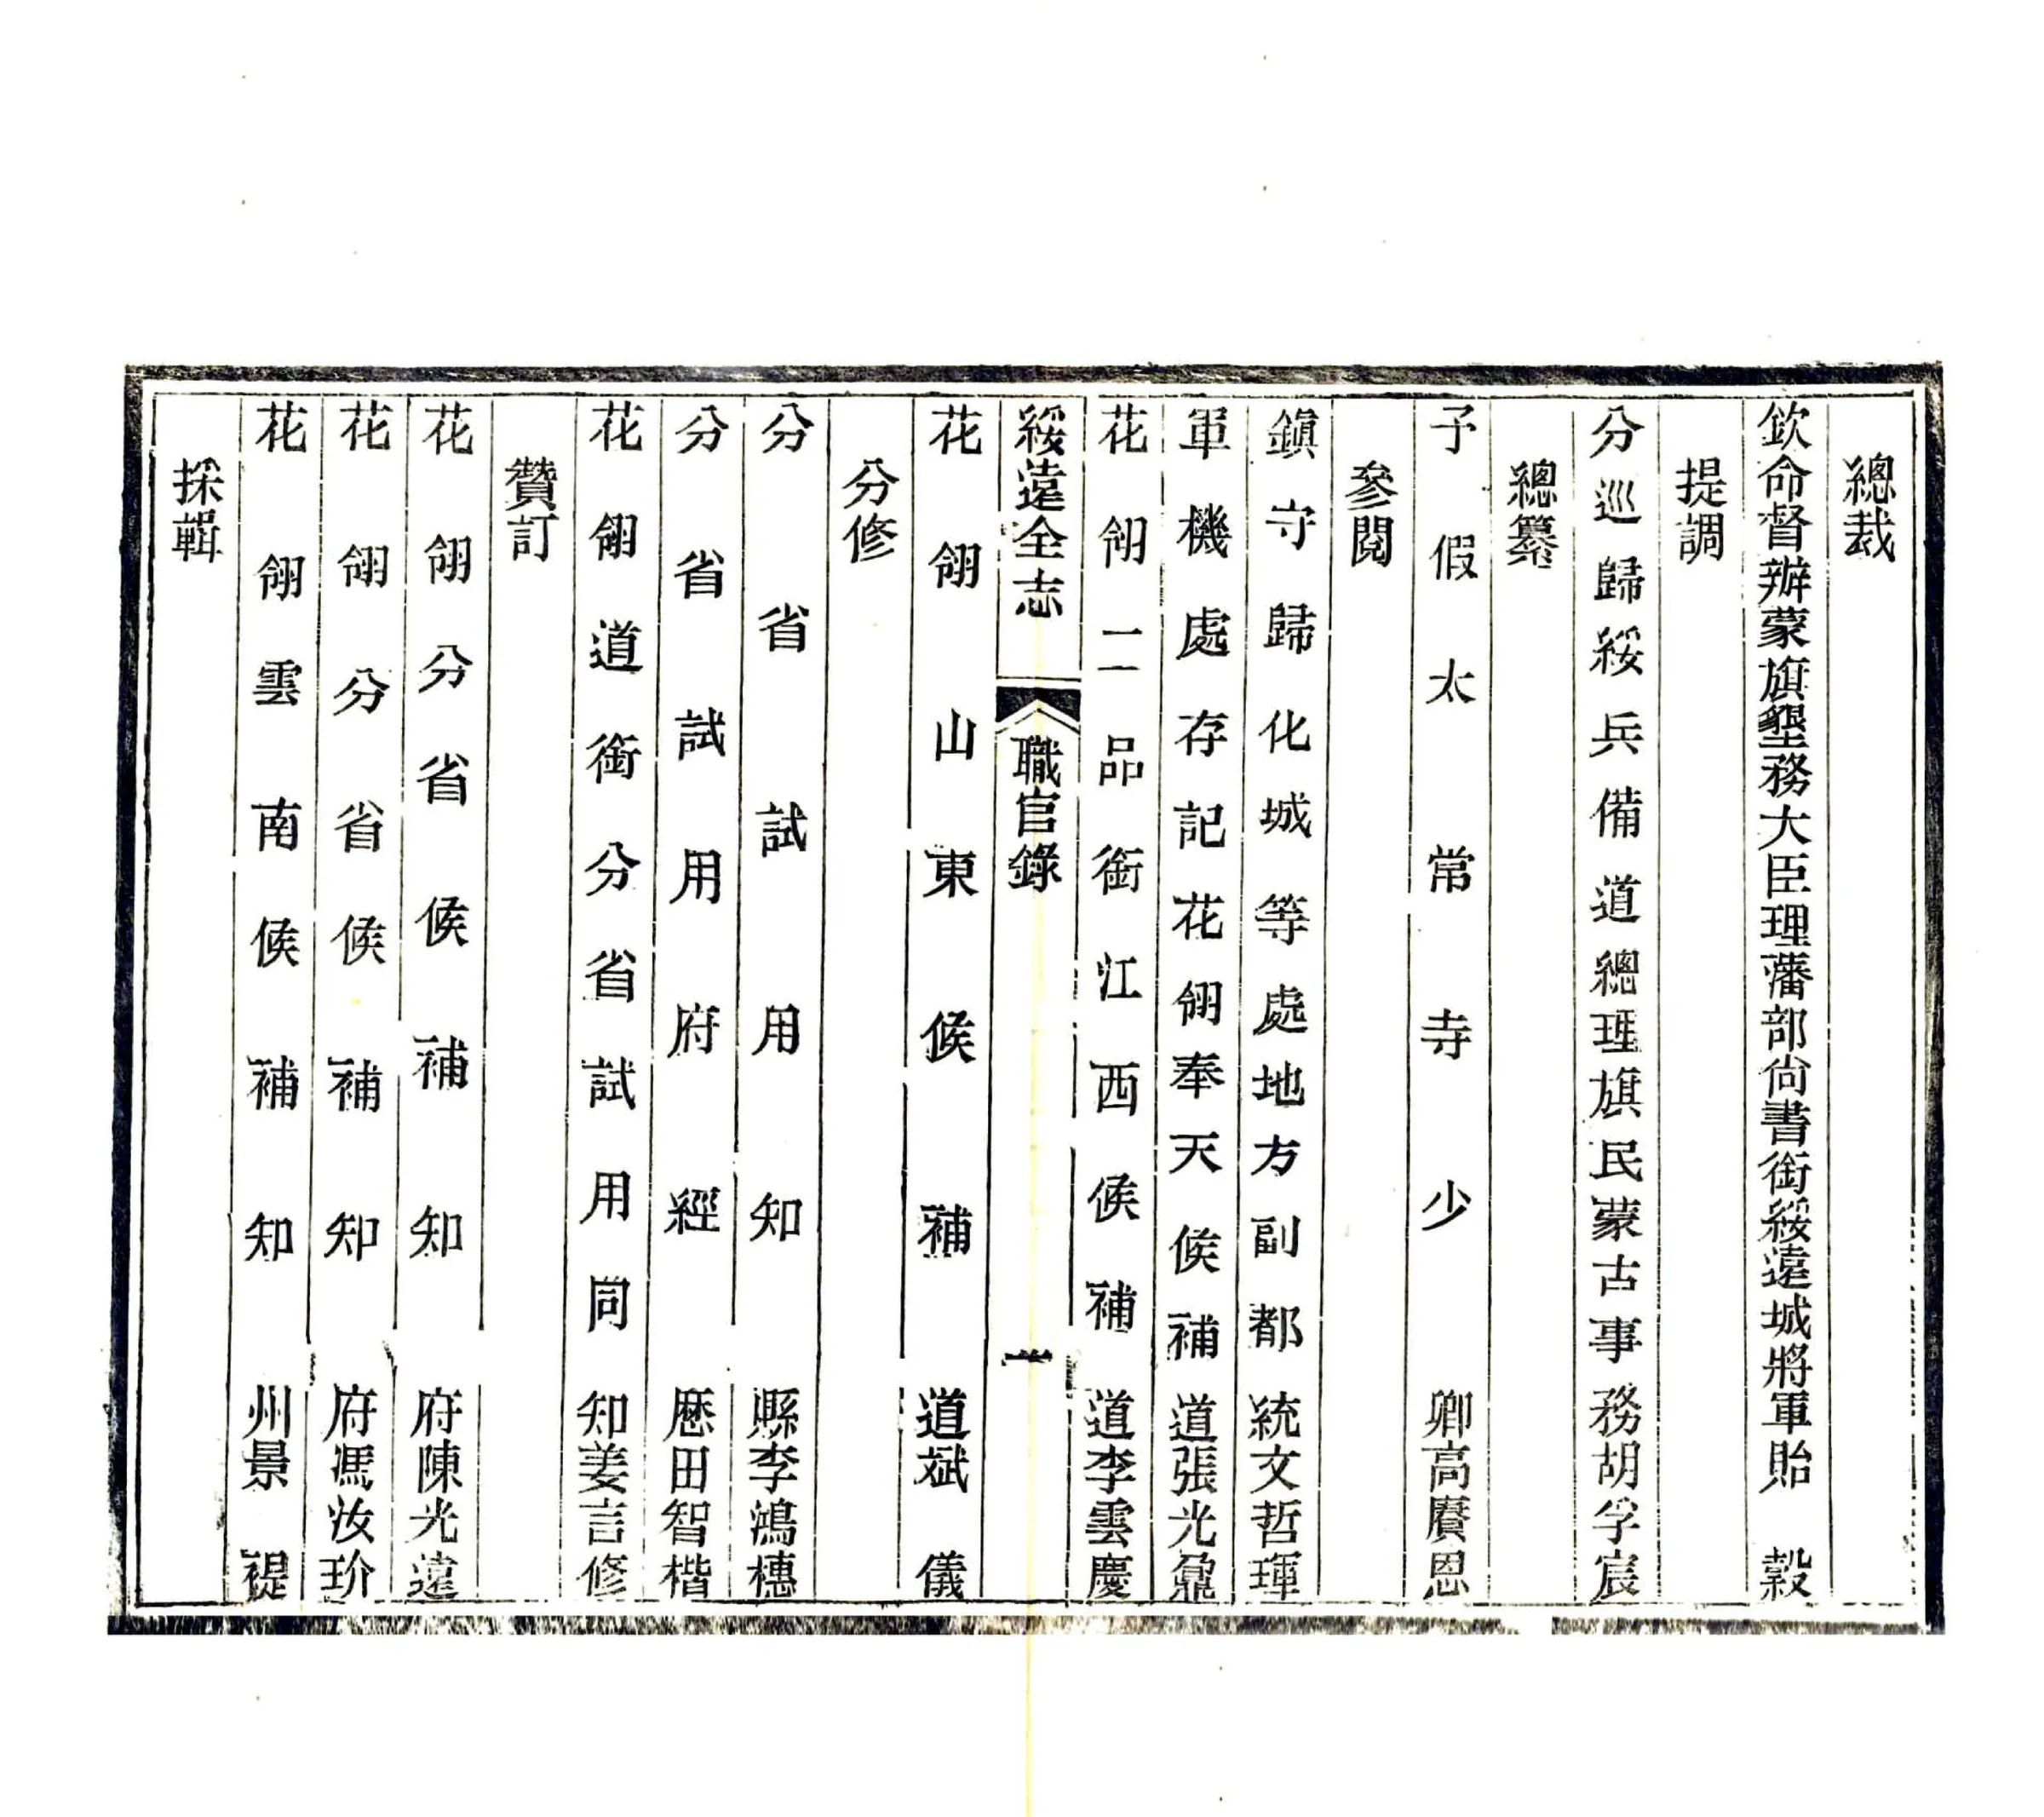 總裁
欽命督辦蒙旗墾務大臣理藩部尙書銜綏遠城將軍貽穀
提調
分巡歸綏兵備道總理旗民蒙古事務胡孚宸
總纂
予假太常寺少卿高賡恩
參閱
鎭守歸化城等處地方副都統文哲琿
軍機處存記花翎奉天候補道張光鼐
花翎二品銜江西候補道李雲慶
綏遠全志 職官錄 一
花翎山東候補道斌儀
分修
分省試用知縣李鴻橞
分省試用府經歷田智楷
花翎道銜分省試用同知姜言修
贊訂
花翎分省候補知府陳光遠
花翎分省候補知府馮汝玠
花翎雲南候補知州景褆
採輯